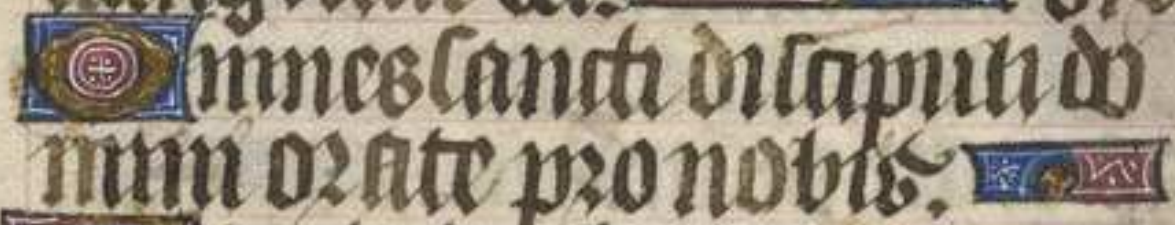 Omnes sancti discipuli do
mini orate pro nobis.